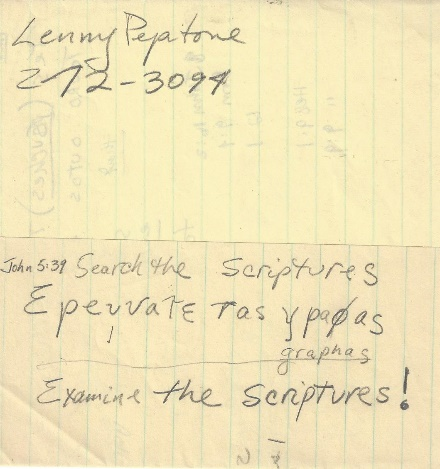 Lenny
272-3094
John 5:39 Search the Scriptures
Ερευνατε τας γραφας
graphas
Examine the Scriptures!